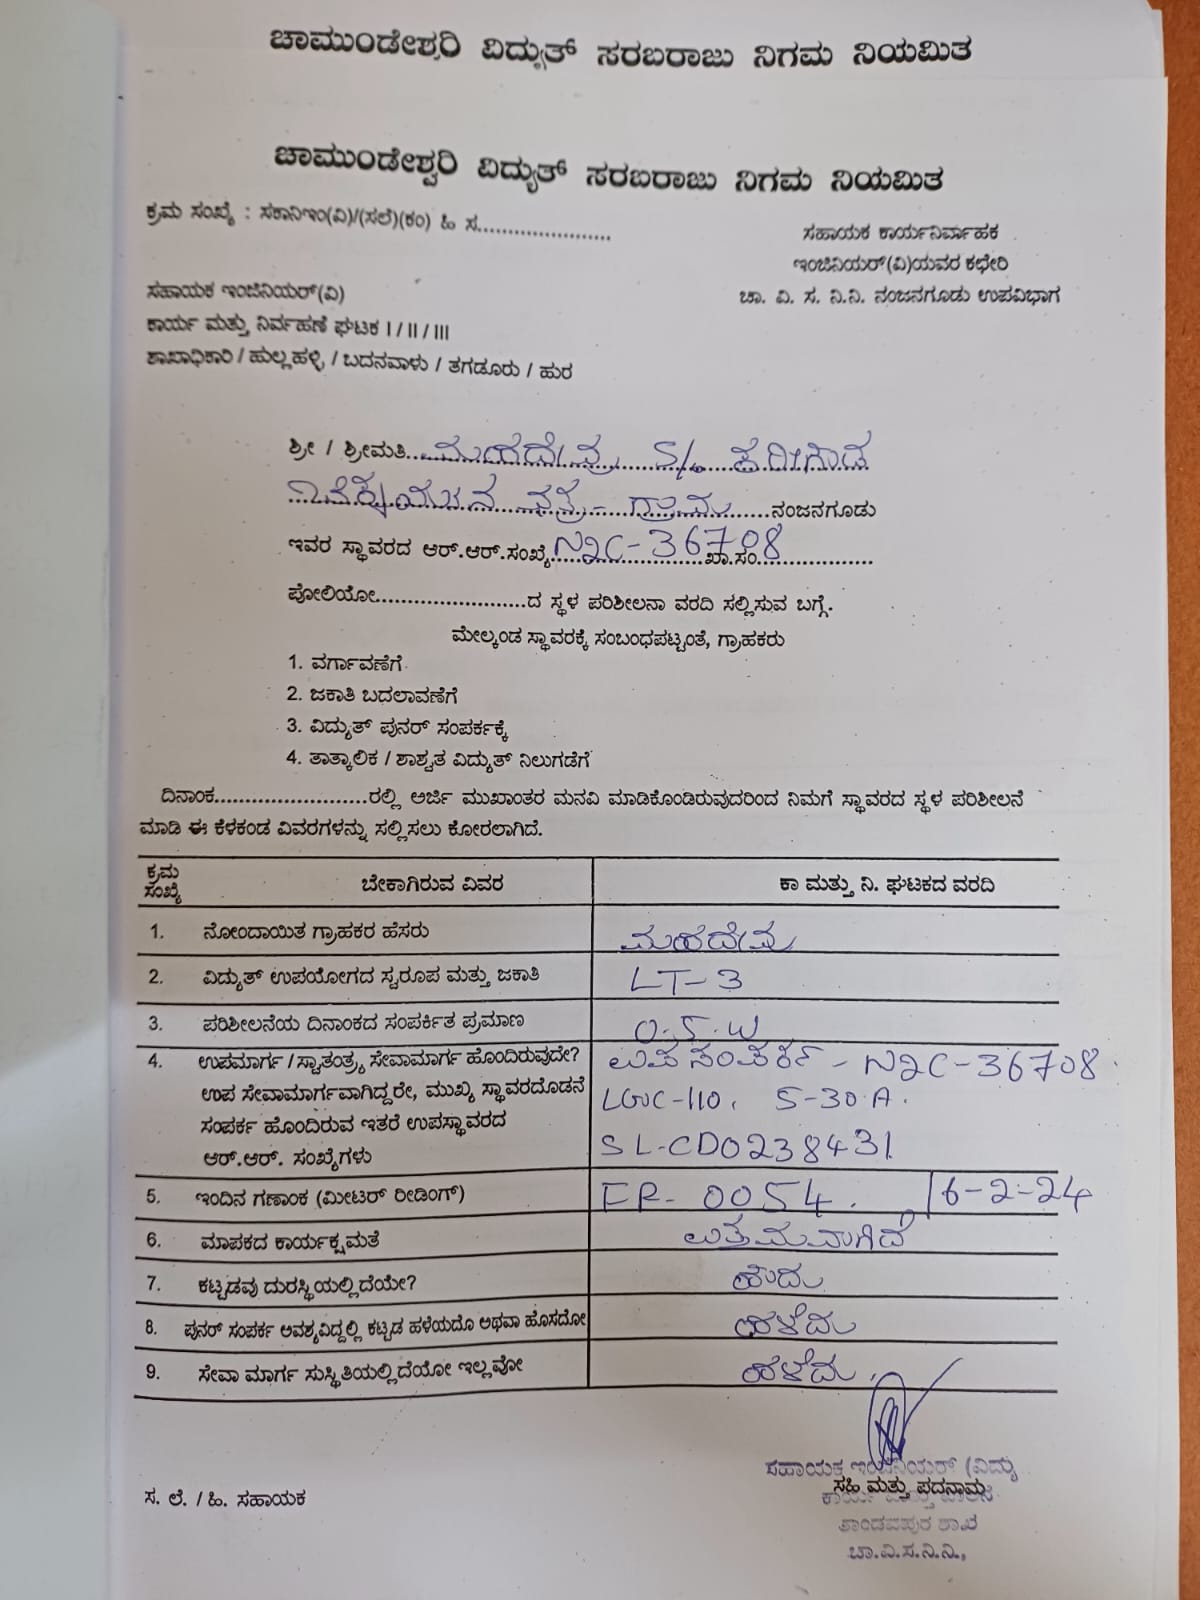 ಚಾಮುಂಡೇಶ್ವರಿ ವಿದ್ಯುತ್ ಸರಬರಾಜು ನಿಗಮ ನಿಯಮಿತ
ಚಾಮುಂಡೇಶ್ವರಿ ವಿದ್ಯುತ್ ಸರಬರಾಜು ನಿಗಮ ನಿಯಮಿತ
ಕ್ರಮ ಸಂಖ್ಯೆ : ಸಕಾನಿಇಂ(ವಿ)/(ಸಲೆ)(ಕಂ) ಹಿ ಸ......................
ಸಹಾಯಕ ಕಾರ್ಯನಿರ್ವಾಹಕ
ಇಂಜಿನಿಯರ್(ವಿ)ಯವರ ಕಛೇರಿ
ಚಾ. ವಿ. ಸ. ನಿ.ನಿ. ನಂಜನಗೂಡು ಉಪವಿಭಾಗ
ಸಹಾಯಕ ಇಂಜಿನಿಯರ್(ವಿ)
ಕಾರ್ಯ ಮತ್ತು ನಿರ್ವಹಣೆ ಘಟಕ I / II / III
ಶಾಖಾಧಿಕಾರಿ / ಹುಲ್ಲಹಳ್ಳಿ / ಬದನವಾಳು / ತಗಡೂರು / ಹುರ
ಶ್ರೀ / ಶ್ರೀಮತಿ ಮಹದೇವ S/o ಕರೀಗೌಡ
ಗ್ರಾಮ ನಂಜನಗೂಡು
ಇವರ ಸ್ಥಾವರದ ಆರ್.ಆರ್.ಸಂಖ್ಯೆ N2C-36708 ಖಾ.ಸಂ...................
ಪೋಲಿಯೋ.........................ದ ಸ್ಥಳ ಪರಿಶೀಲನಾ ವರದಿ ಸಲ್ಲಿಸುವ ಬಗ್ಗೆ.
ಮೇಲ್ಕಂಡ ಸ್ಥಾವರಕ್ಕೆ ಸಂಬಂಧಪಟ್ಟಂತೆ, ಗ್ರಾಹಕರು
1. ವರ್ಗಾವಣೆಗೆ
2. ಜಕಾತಿ ಬದಲಾವಣೆಗೆ
3. ವಿದ್ಯುತ್ ಪುನರ್ ಸಂಪರ್ಕಕ್ಕೆ
4. ತಾತ್ಕಾಲಿಕ / ಶಾಶ್ವತ ವಿದ್ಯುತ್ ನಿಲುಗಡೆಗೆ
ದಿನಾಂಕ.........................ರಲ್ಲಿ ಅರ್ಜಿ ಮುಖಾಂತರ ಮನವಿ ಮಾಡಿಕೊಂಡಿರುವುದರಿಂದ ನಿಮಗೆ ಸ್ಥಾವರದ ಸ್ಥಳ ಪರಿಶೀಲನೆ
ಮಾಡಿ ಈ ಕೆಳಕಂಡ ವಿವರಗಳನ್ನು ಸಲ್ಲಿಸಲು ಕೋರಲಾಗಿದೆ.
ಕ್ರಮ ಸಂಖ್ಯೆ ಬೇಕಾಗಿರುವ ವಿವರ ಕಾ ಮತ್ತು ನಿ. ಘಟಕದ ವರದಿ
1. ನೋಂದಾಯಿತ ಗ್ರಾಹಕರ ಹೆಸರು ಮಹದೇವ
2. ವಿದ್ಯುತ್ ಉಪಯೋಗದ ಸ್ವರೂಪ ಮತ್ತು ಜಕಾತಿ LT-3
3. ಪರಿಶೀಲನೆಯ ದಿನಾಂಕದ ಸಂಪರ್ಕಿತ ಪ್ರಮಾಣ 0.5.W
4. ಉಪಮಾರ್ಗ / ಸ್ವಾತಂತ್ರ್ಯ ಸೇವಾಮಾರ್ಗ ಹೊಂದಿರುವುದೇ? ಉಪ ಸಂಪರ್ಕ - N2C-36708
ಉಪ ಸೇವಾಮಾರ್ಗವಾಗಿದ್ದರೇ, ಮುಖ್ಯ ಸ್ಥಾವರದೊಡನೆ LGUC-110. 5-30.A.
ಸಂಪರ್ಕ ಹೊಂದಿರುವ ಇತರೆ ಉಪಸ್ಥಾವರದ SL-CD0238431
ಆರ್.ಆರ್. ಸಂಖ್ಯೆಗಳು
5. ಇಂದಿನ ಗಣಾಂಕ (ಮೀಟರ್ ರೀಡಿಂಗ್) FR- 0054. 16-2-24
6. ಮಾಪಕದ ಕಾರ್ಯಕ್ಷಮತೆ ಉತ್ತಮವಾಗಿದೆ
7. ಕಟ್ಟಡವು ದುರಸ್ಥಿಯಲ್ಲಿದೆಯೇ? ಹೌದು
8. ಪುನರ್ ಸಂಪರ್ಕ ಅವಶ್ಯವಿದ್ದಲ್ಲಿ ಕಟ್ಟಡ ಹಳೆಯದೊ ಅಥವಾ ಹೊಸದೋ ಹಳೆದು
9. ಸೇವಾ ಮಾರ್ಗ ಸುಸ್ಥಿತಿಯಲ್ಲಿದೆಯೋ ಇಲ್ಲವೋ ಹಳೆದು.
ಸಹಾಯಕ ಇಂಜಿನಿಯರ್ (ವಿದ್ಯು
ಸ. ಲೆ. / ಹಿ. ಸಹಾಯಕ ಸಹಿ ಮತ್ತು ಪದನಾಮ
ತಾಂಡವಪುರ ಶಾಖೆ
ಚಾ.ವಿ.ಸ.ನಿ.ನಿ.,